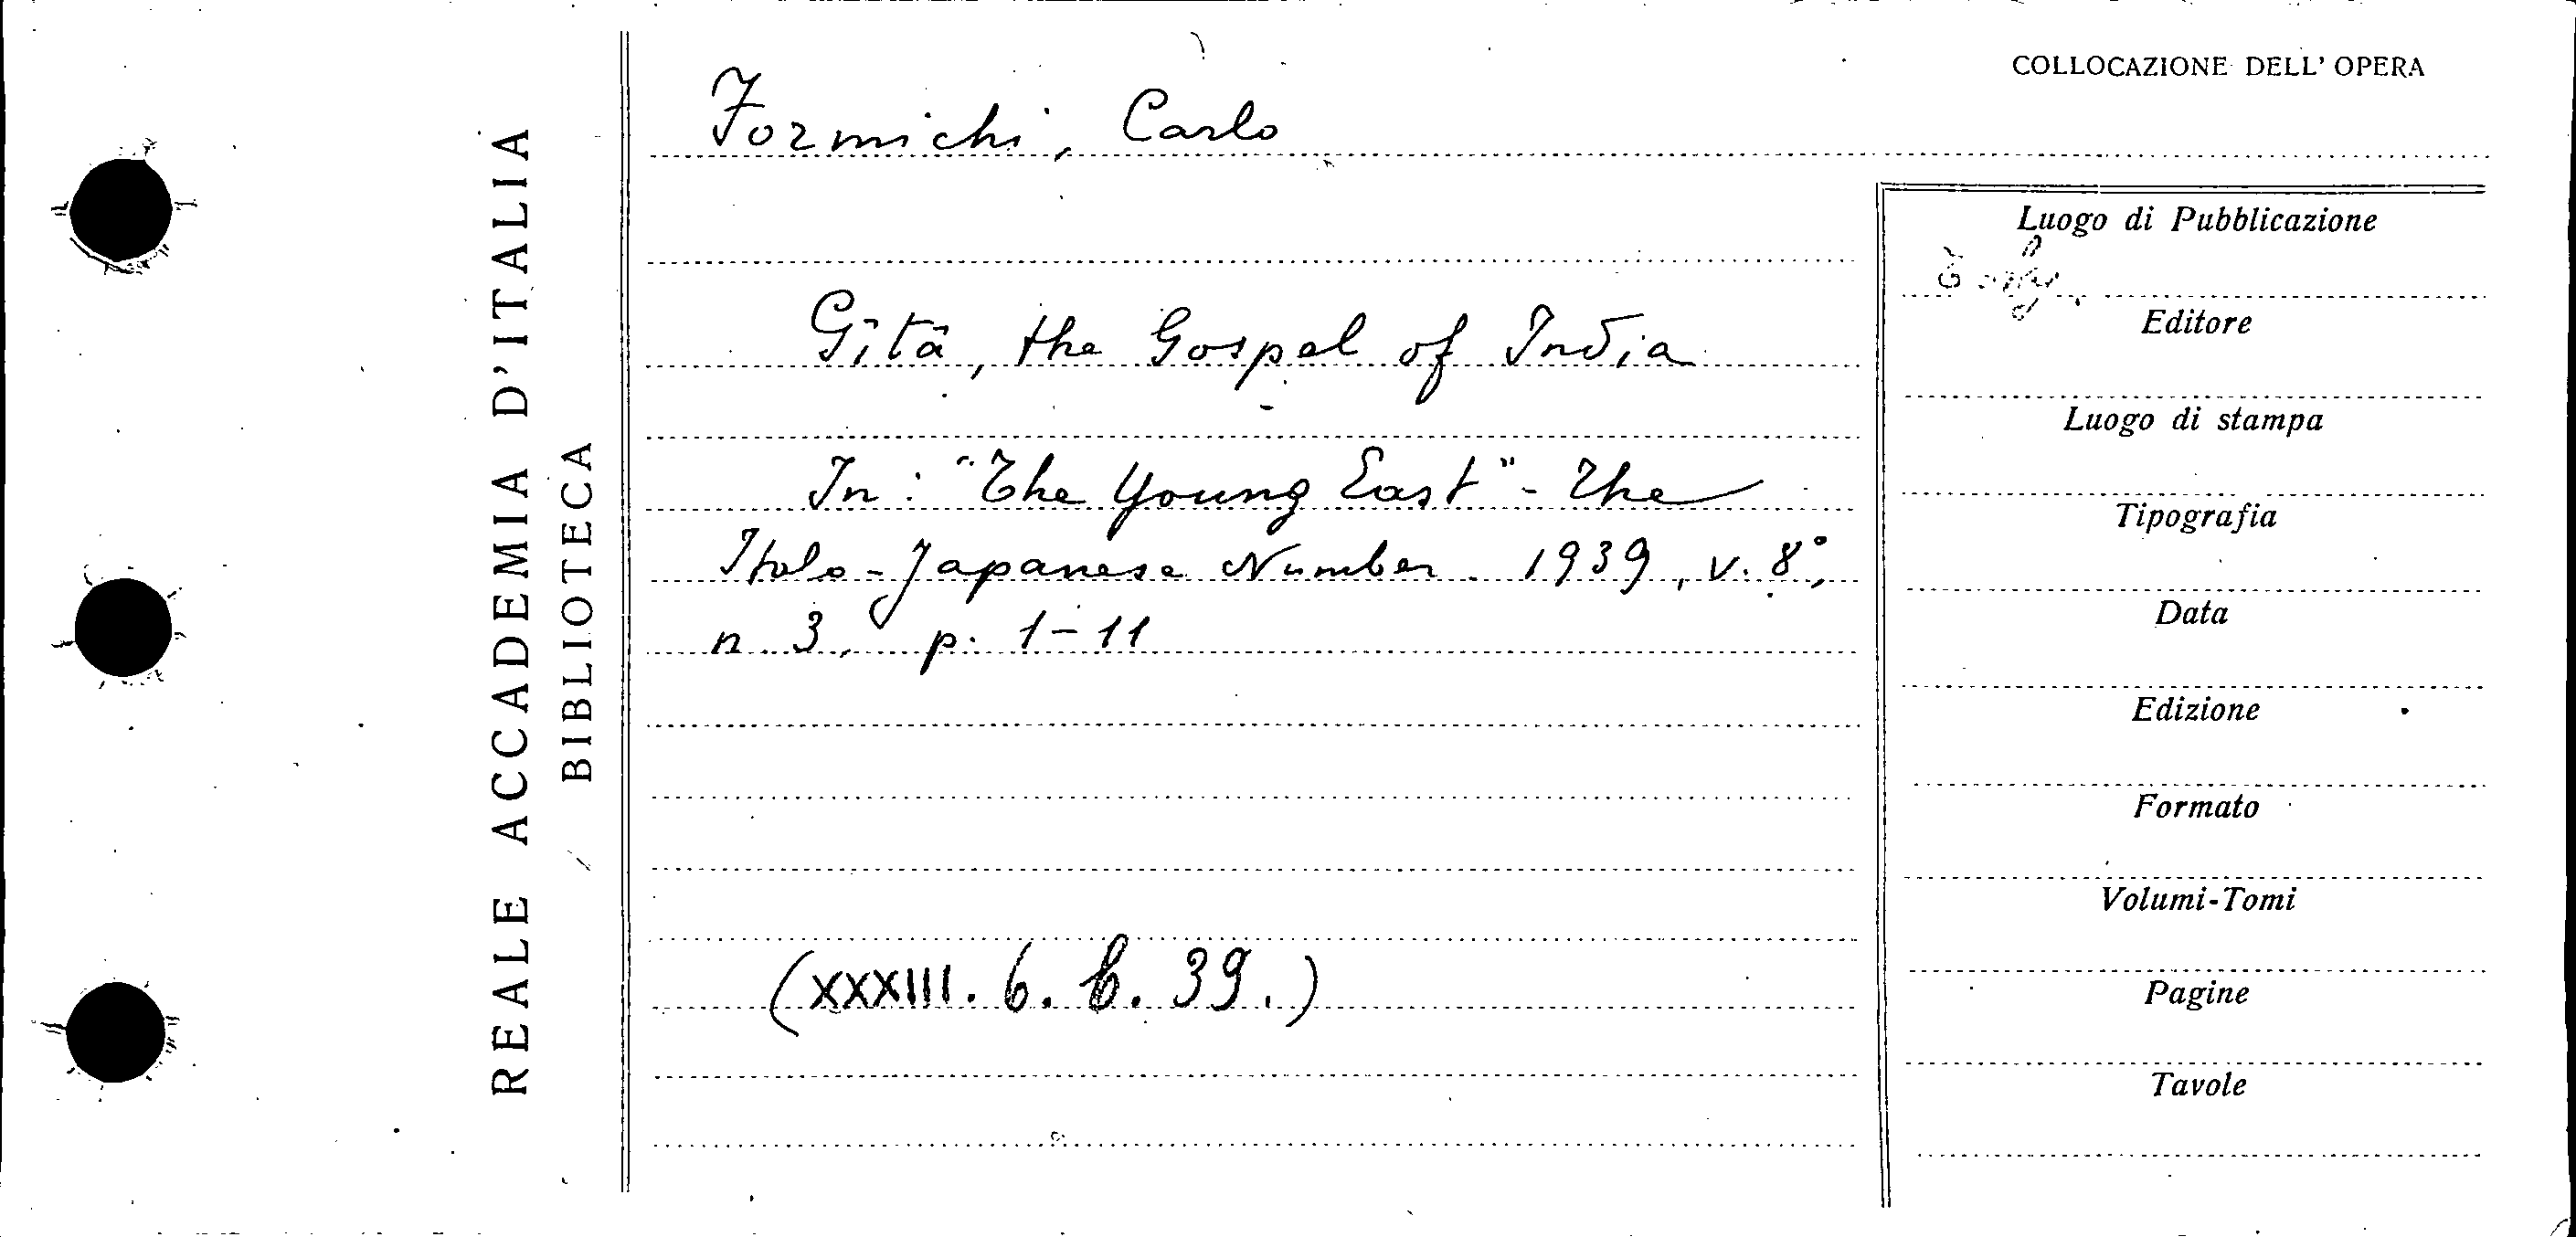 REALE ACCADEMIA D'ITALIA
BIBLIOTECA
COLLOCAZIONE DELL' OPERA
Formichi, Carlo
Gîtâ, the Gospel of India
In: "The Young East" - The
Italo-Japanese Number. 1939, v. 8°,
n. 3, p. 1-11
(XXXIII. 6. b. 39.)
Luogo di Pubblicazione
Editore
Luogo di stampa
Tipografia
Data
Edizione
Formato
Volumi-Tomi
Pagine
Tavole